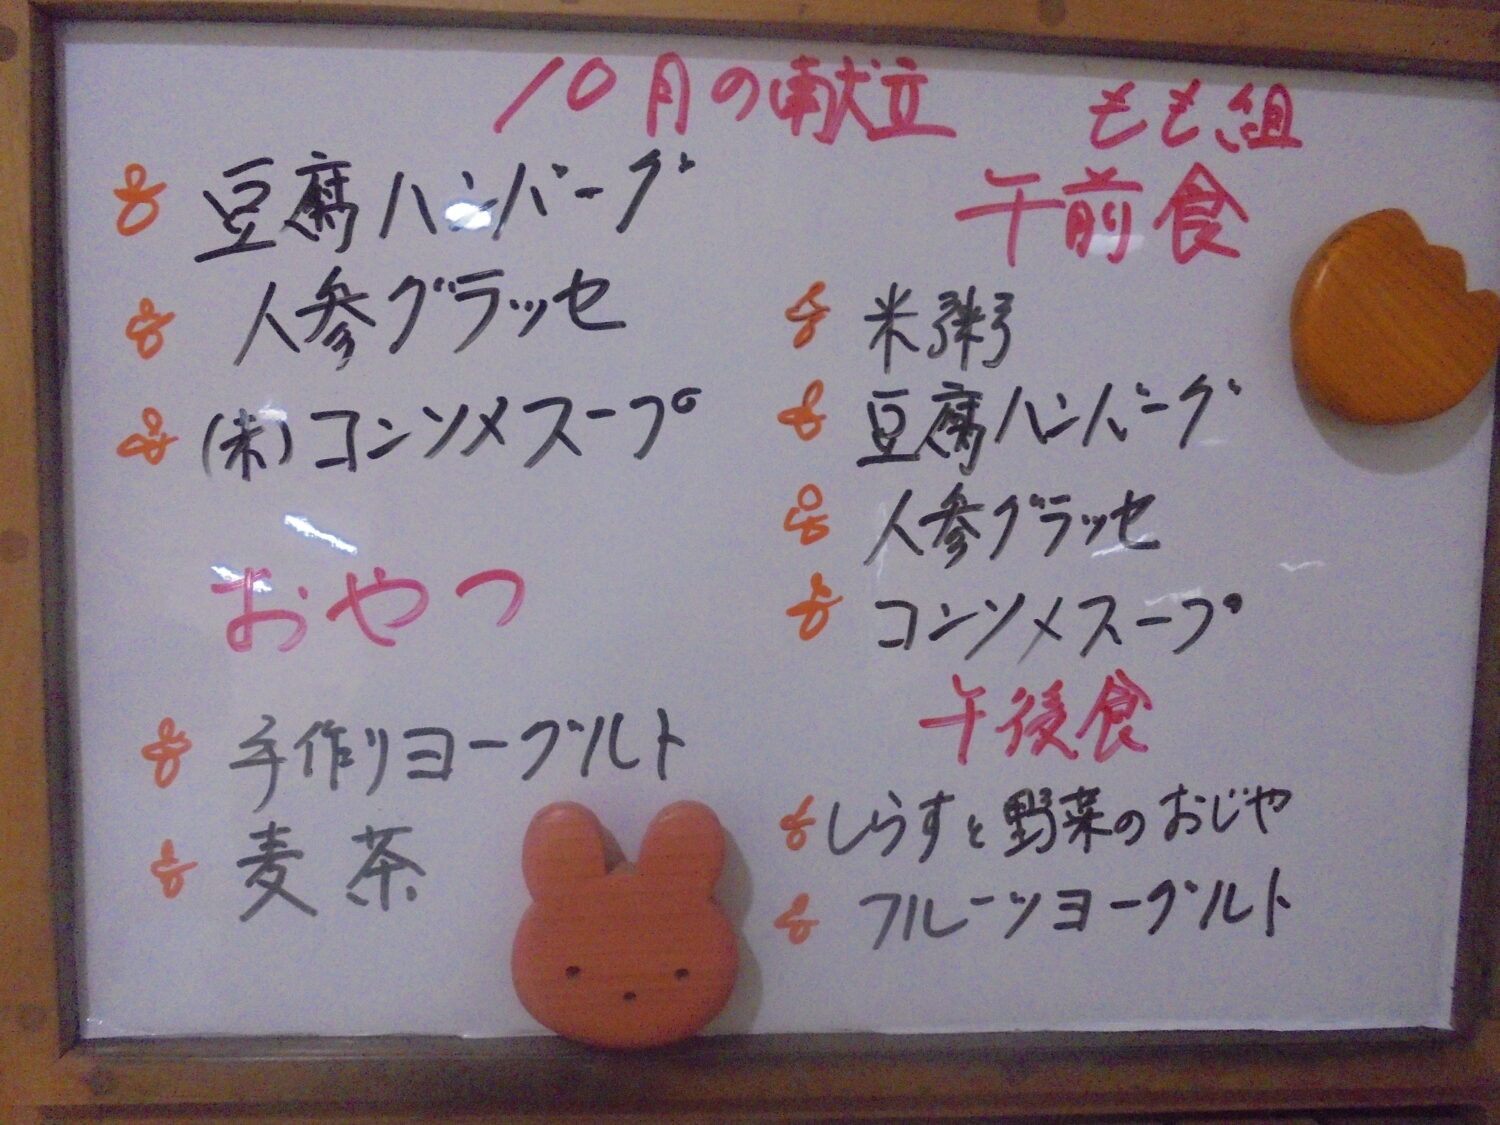 10月の献立
豆腐ハンバーグ
人参グラッセ
(米)コンソメスープ
おやつ
手作りヨーグルト
麦茶
もも組
午前食
米粥
豆腐ハンバーグ
人参グラッセ
コンソメスープ
午後食
しらすと野菜のおじや
フルーツヨーグルト